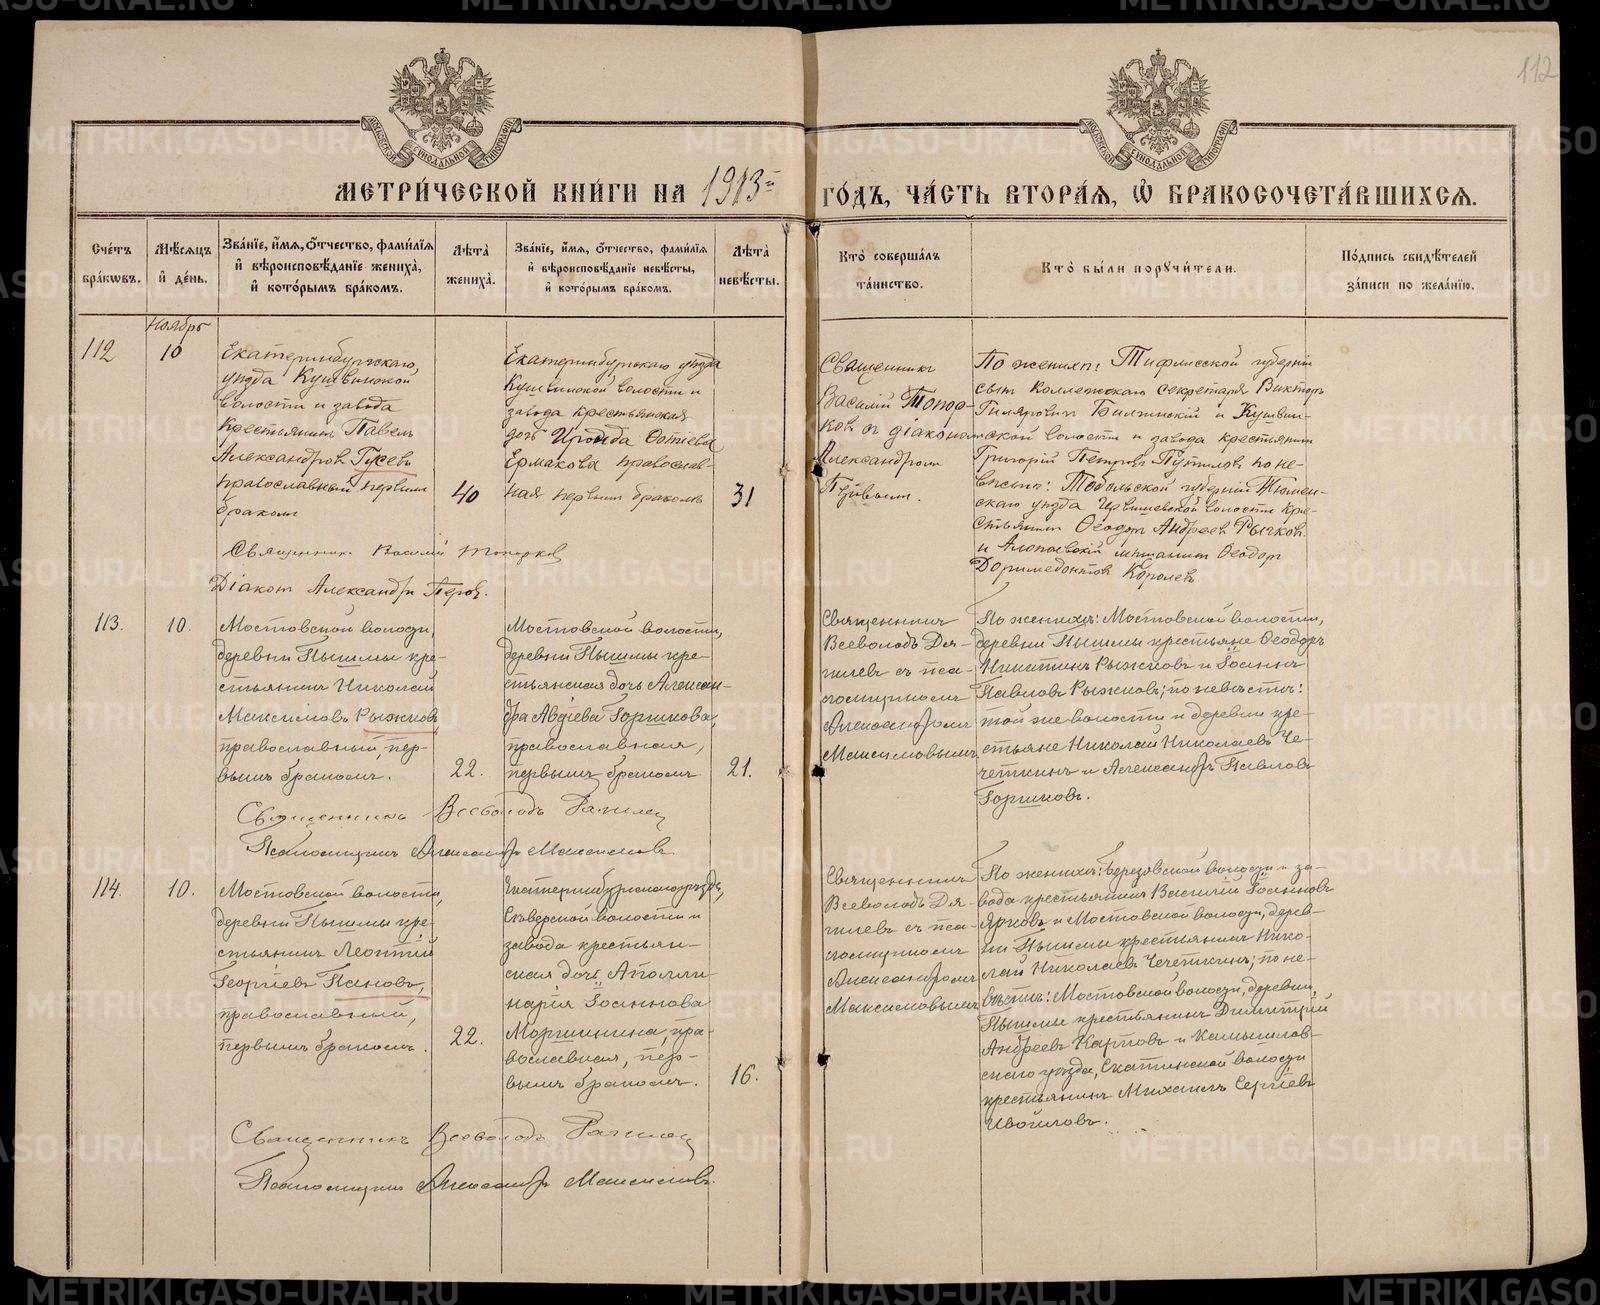 112
МОСКОВСКОЙ СѴНОДАЛЬНОЙ ТИПОГРАФІИ
МОСКОВСКОЙ СѴНОДАЛЬНОЙ ТИПОГРАФІИ
МЕТРИ́ЧЕСКОЙ КНИ́ГИ НА 1913й ГО́ДЪ, ЧА́СТЬ ВТОРА́Я, Ѽ БРАКОСОЧЕТА́ВШИХСЯ.
Сче́тъ
бра́кѡвъ.
Мѣ́сяцъ
и҆ де́нь.
Зва́нїе, и҆́мя, ѻ҆́тчество, фами́лїя
и҆ вѣроисповѣ́данїе жениха̀,
и҆ кото́рымъ бра́комъ.
Лѣ́та
жениха̀.
Зва́нїе, и҆́мя, ѻ҆́тчество, фами́лїя
и҆ вѣроисповѣ́данїе невѣ́сты,
и҆ кото́рымъ бра́комъ.
Лѣ́та
невѣ́сты.
Кто̀ соверша́лъ
та́инство.
Кто̀ бы́ли поручи́тели.
По́дпись свидѣ́телей
за́писи по жела́нїю.
Ноябрь
112
10
Екатеринбургскаго
уѣзда Кушвинской
волости и завода
крестьянинъ Павелъ
Александровъ Гусевъ
православный первымъ
бракомъ
40
Екатеринбургскаго уѣзда
Кушвинской волости и
завода крестьянская
дочь Ироида Фотіева
Ермакова православ-
ная первымъ бракомъ
31
Священникъ
Василій Топор-
ковъ съ діакономъ
Александромъ
По женихѣ: Тифлисской губерніи
сынъ коллежскаго секретаря Викторъ
Гиляровичъ Билинскій и Кушвин-
ской волости и завода крестьянинъ
Григорій Петровъ Путиловъ по не-
вѣстѣ: Тобольской губерніи Тюмен-
скаго уѣзда Червишевской волости кре-
стьянинъ Ѳеодотъ Андреевъ Рычковъ
и Алапаевскій мѣщанинъ Ѳеодоръ
Доримедонтовъ Королевъ
Священникъ Василій Топорковъ
Діаконъ Александръ
113.
10.
Мостовской волости,
деревни Пышмы кре-
стьянинъ Николай
Максимовъ Рыжковъ,
православный, пер-
вымъ бракомъ.
22.
Мостовской волости,
деревни Пышмы кре-
стьянская дочь Алексан-
дра Авдіева Горшкова,
православная,
первымъ бракомъ
21.
Священникъ
Всеволодъ Дя-
гилевъ съ пса-
ломщикомъ
Александромъ
Максимовымъ
По женихѣ: Мостовской волости,
деревни Пышмы крестьяне Ѳеодоръ
Никитинъ Рыжковъ и Іоаннъ
Павловъ Рыжковъ; по невѣстѣ:
той же волости и деревни кре-
стьяне Николай Николаевъ Че-
четкинъ и Александръ Павловъ
Горшковъ.
Священникъ Всеволодъ Дягилевъ
Псаломщикъ Александръ Максимовъ
114.
10.
Мостовской волости,
деревни Пышмы кре-
стьянинъ Леонтій
Георгіевъ Пановъ,
православный,
первымъ бракомъ.
22.
Екатеринбургскаго уѣзда,
волости и
завода крестьян-
ская дочь Аполли-
нарія Іоаннова
Моршинина, пра-
вославная, пер-
вымъ бракомъ.
16.
Священникъ
Всеволодъ Дя-
гилевъ съ пса-
ломщикомъ
Александромъ
Максимовымъ
По женихѣ: Березовской волости и за-
вода крестьянинъ Василій Іоанновъ
Ярковъ и Мостовской волости, дерев-
ни Пышмы крестьянинъ Нико-
лай Николаевъ Чечеткинъ; по не-
вѣстѣ: Мостовской волости, деревни
Пышмы крестьянинъ Димитрій
Андреевъ Карповъ и Камышлов-
скаго уѣзда, Скатинской волости
крестьянинъ Михаилъ Сергіевъ
Ивойловъ.
Священникъ Всеволодъ Дягилевъ
Псаломщикъ Александръ Максимовъ.
METRIKI.GASO-URAL.RU